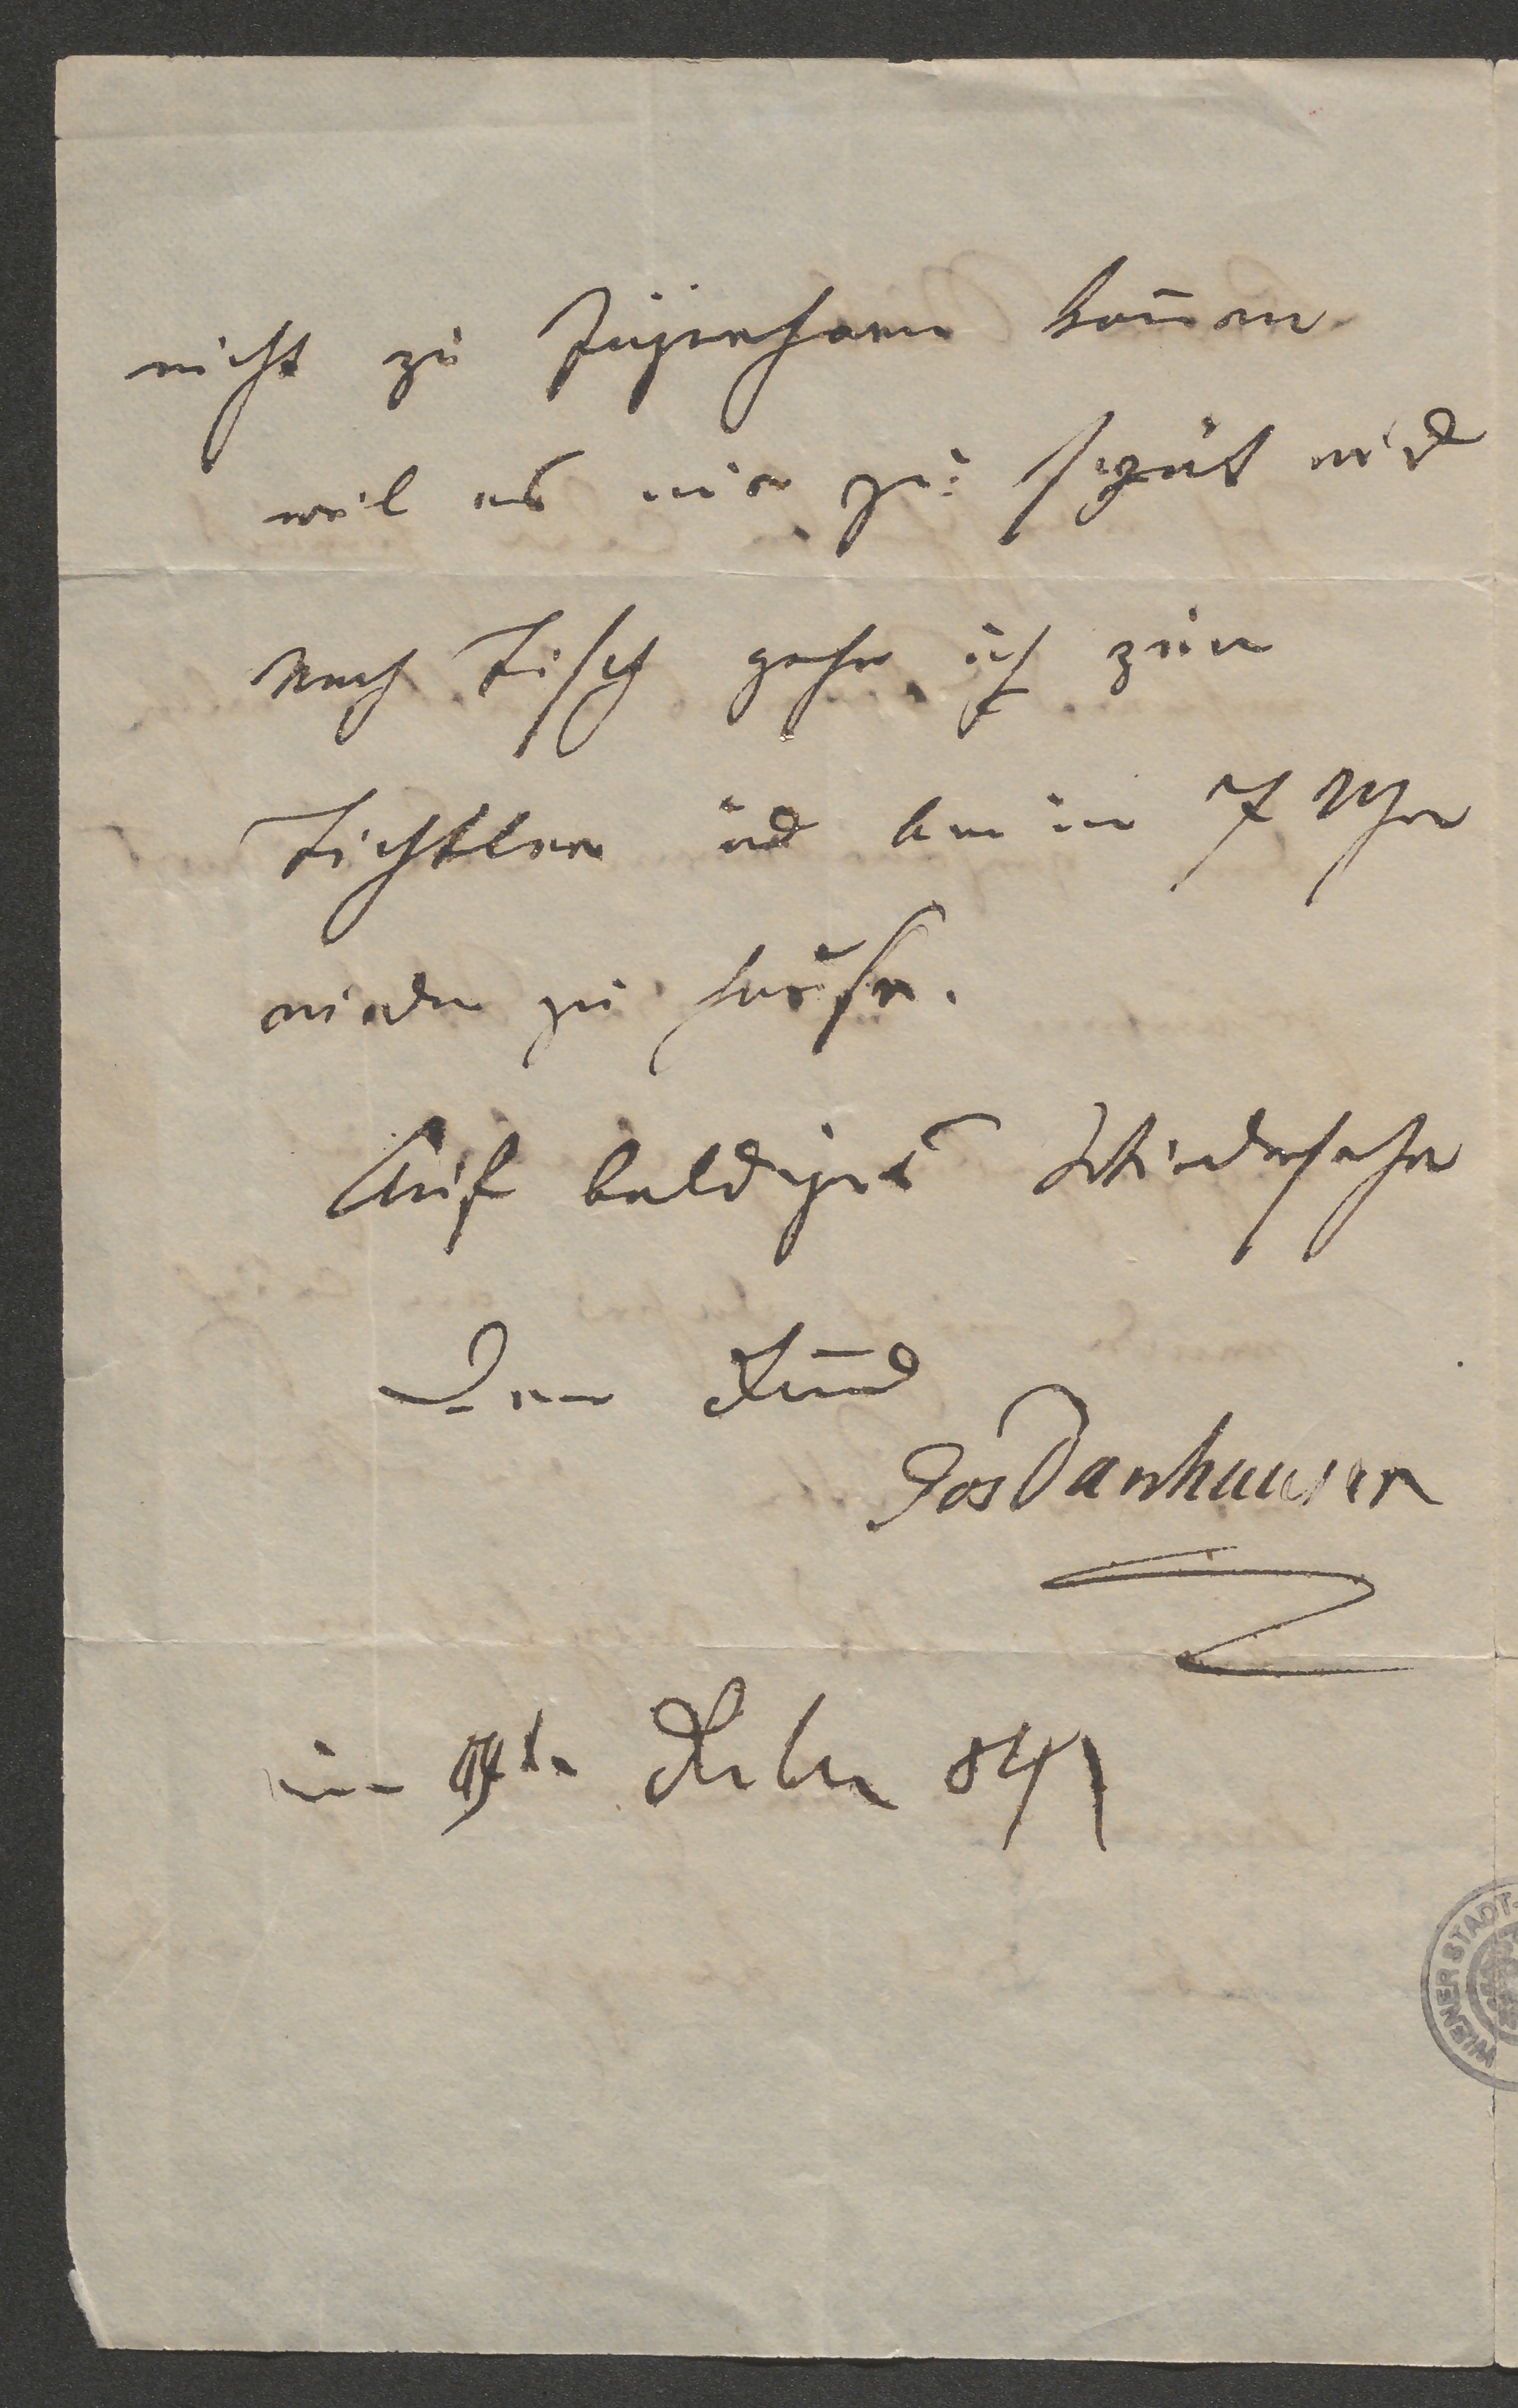 nicht zu kom̅en
weil es mir zu spät wird
Nach Tisch gehe ich zum
Tischler ud bin um 7 Uhr
wieder zu Hause.
Auf baldiges Wiedersehn
Dein Freund
Jos Danhauser
im Feber 841
WIENER STADT-